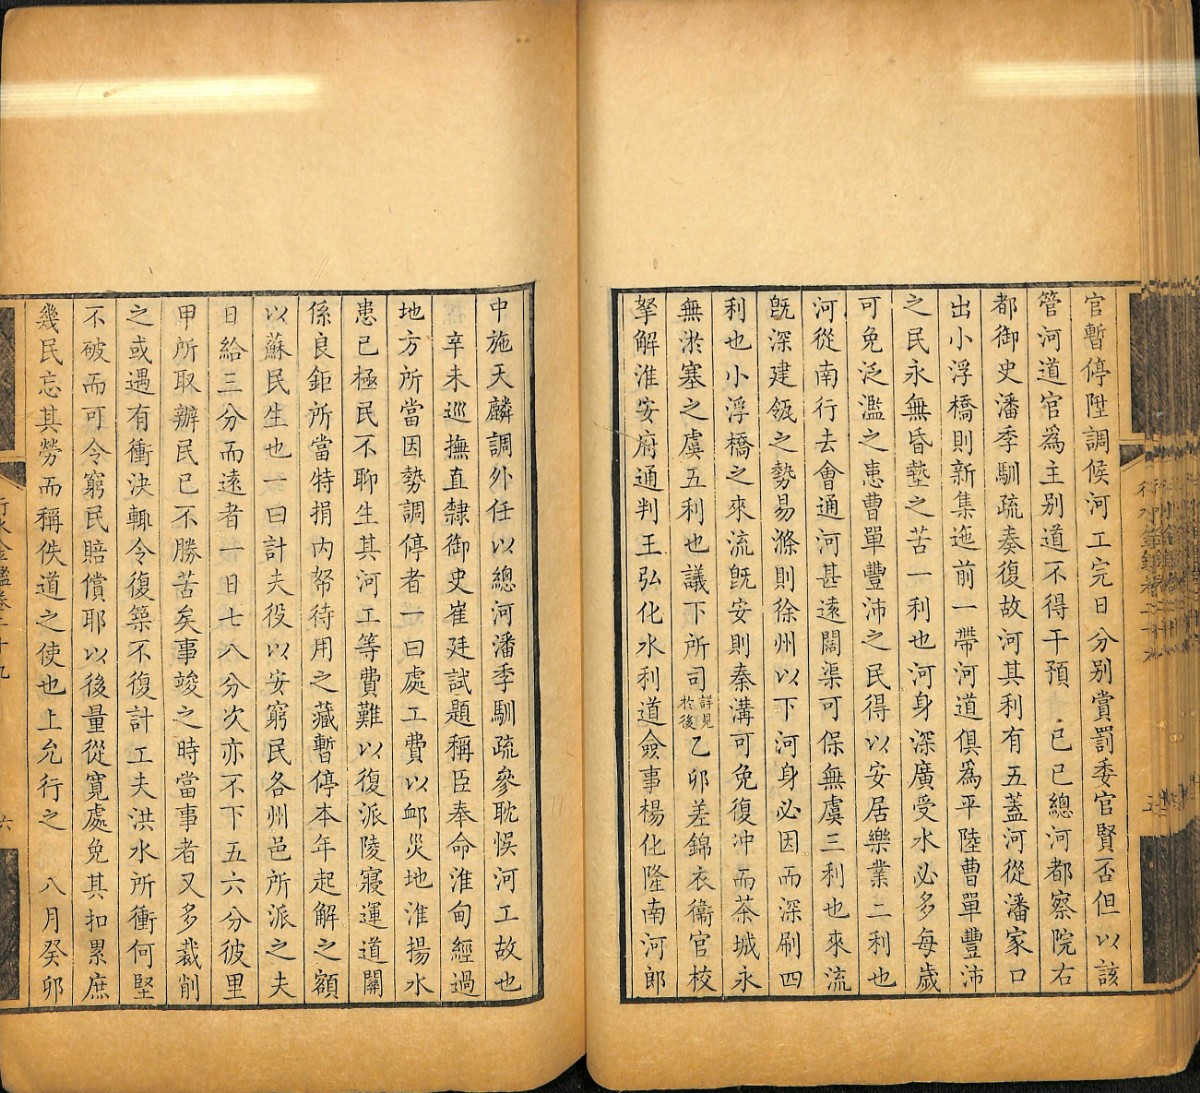 官暫停陞調候河工完日分别賞罰委官賢否但以該
管河道官爲主别道不得干預 己巳總河都察院右
都御史潘季馴疏奏復故河其利有五蓋河從潘家口
出小浮橋則新集迤前一帶河道俱爲平陸曹單豐沛
之民永無昏墊之苦一利也河身深廣受水必多每歲
可免泛濫之患曹單豐沛之民得以安居樂業二利也
河從南行去會通河甚遠闊渠可保無虞三利也來流
旣深建瓴之勢易滌則徐州以下河身必因而深刷四
利也小浮橋之來流旣安則秦溝可免復冲而茶城永
無淤塞之虞五利也議下所司詳見於後乙卯差錦衣衞官校
拏解淮安府通判王弘化水利道僉事楊化隆南河郎
中施天麟調外任以總河潘季馴疏參耽悞河工故也
辛未巡撫直隸御史崔廷試題稱臣奉命淮甸經過
地方所當因勢調停者一曰處工費以䘏災地淮揚水
患已極民不聊生其河工等費難以復派陵寢運道關
係良鉅所當特捐内帑待用之藏暫停本年起解之額
以蘇民生也一曰計夫役以安窮民各州邑所派之夫
日給三分而遠者一日七八分次亦不下五六分彼里
甲所取辦民已不勝苦矣事竣之時當事者又多裁削
之或遇有衝決輒令復築不復計工夫洪水所衝何堅
不破而可令窮民賠償耶以後量從寬處免其扣累庶
幾民忘其勞而稱佚道之使也上允行之 八月癸卯
行水金鑑卷三十九
六